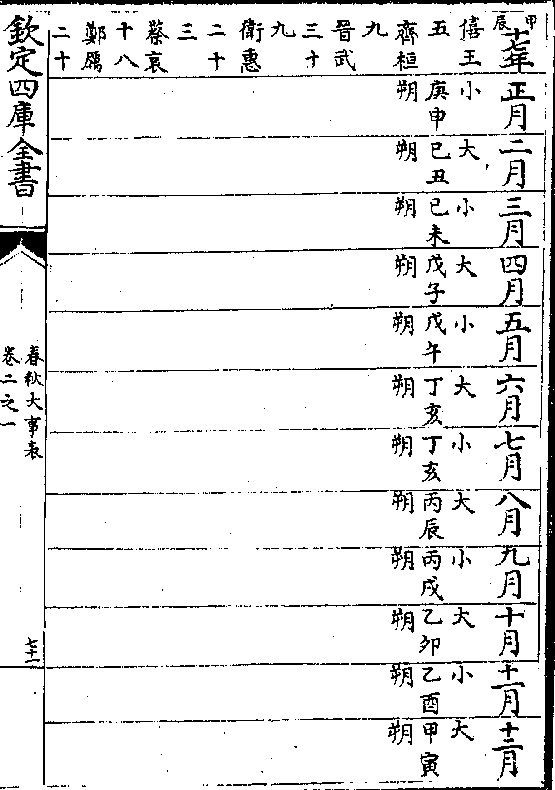 甲辰
十七年
僖王
五
齊桓
九
晉武
三十
九
衛惠
二十
三
蔡哀
十八
鄭厲
二十
正月
小
庚申
朔
二月
大
己丑
朔
三月
小
己未
朔
四月
大
戊子
朔
五月
小
戊午
朔
六月
大
丁亥
朔
七月
小
丁亥
朔
八月
大
丙辰
朔
九月
小
丙戌
朔
十月
大
乙卯
朔
十一月
小
乙酉
朔
十二月
大
甲寅
朔
欽定四庫全書
春秋大事表
卷二之一